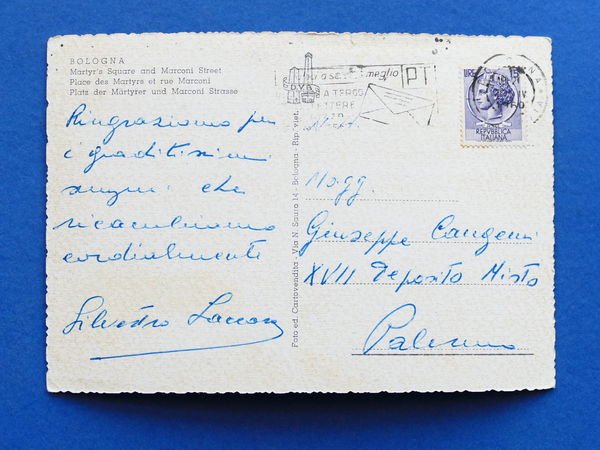 BOLOGNA
Martyr's Square and Marconi Street
Place des Martyrs et rue Marconi
Platz der Märtyrer und Marconi Strasse
Ringraziamo per
i graditissimi
auguri che
ricambiamo
cordialmente
Silvestro
Foto ed. Cartovendita - Via N. Sauro 14 - Bologna - Rip. viet.
meglio
PT
LIRE 15
REPVBBLICA
ITALIANA
Magg.
Giuseppe Cangemi
XVII Deposito Misto
Palermo